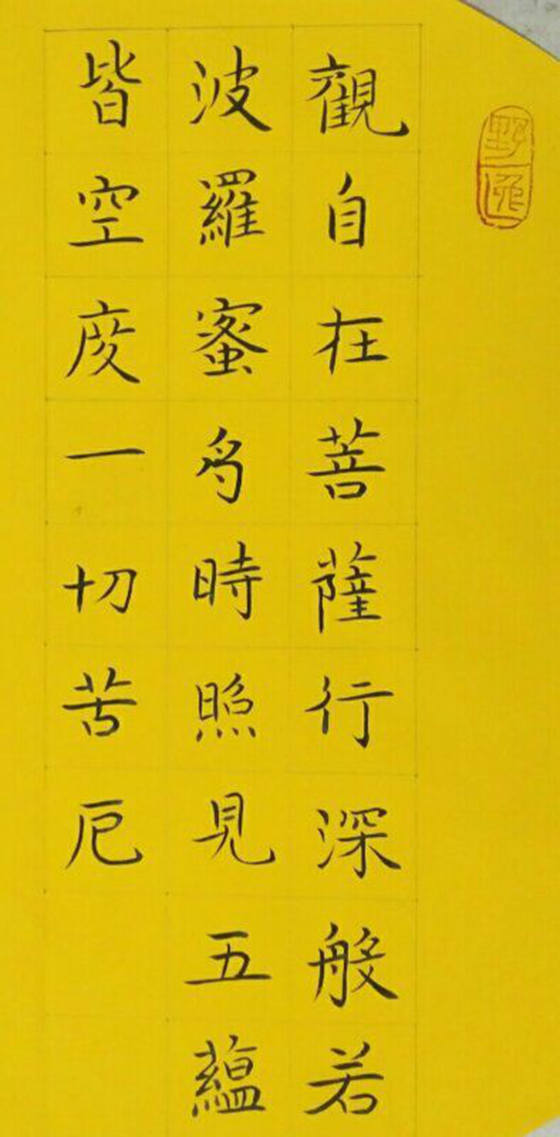 觀自在菩薩行深般若
波羅蜜多時照見五蘊
皆空度一切苦厄